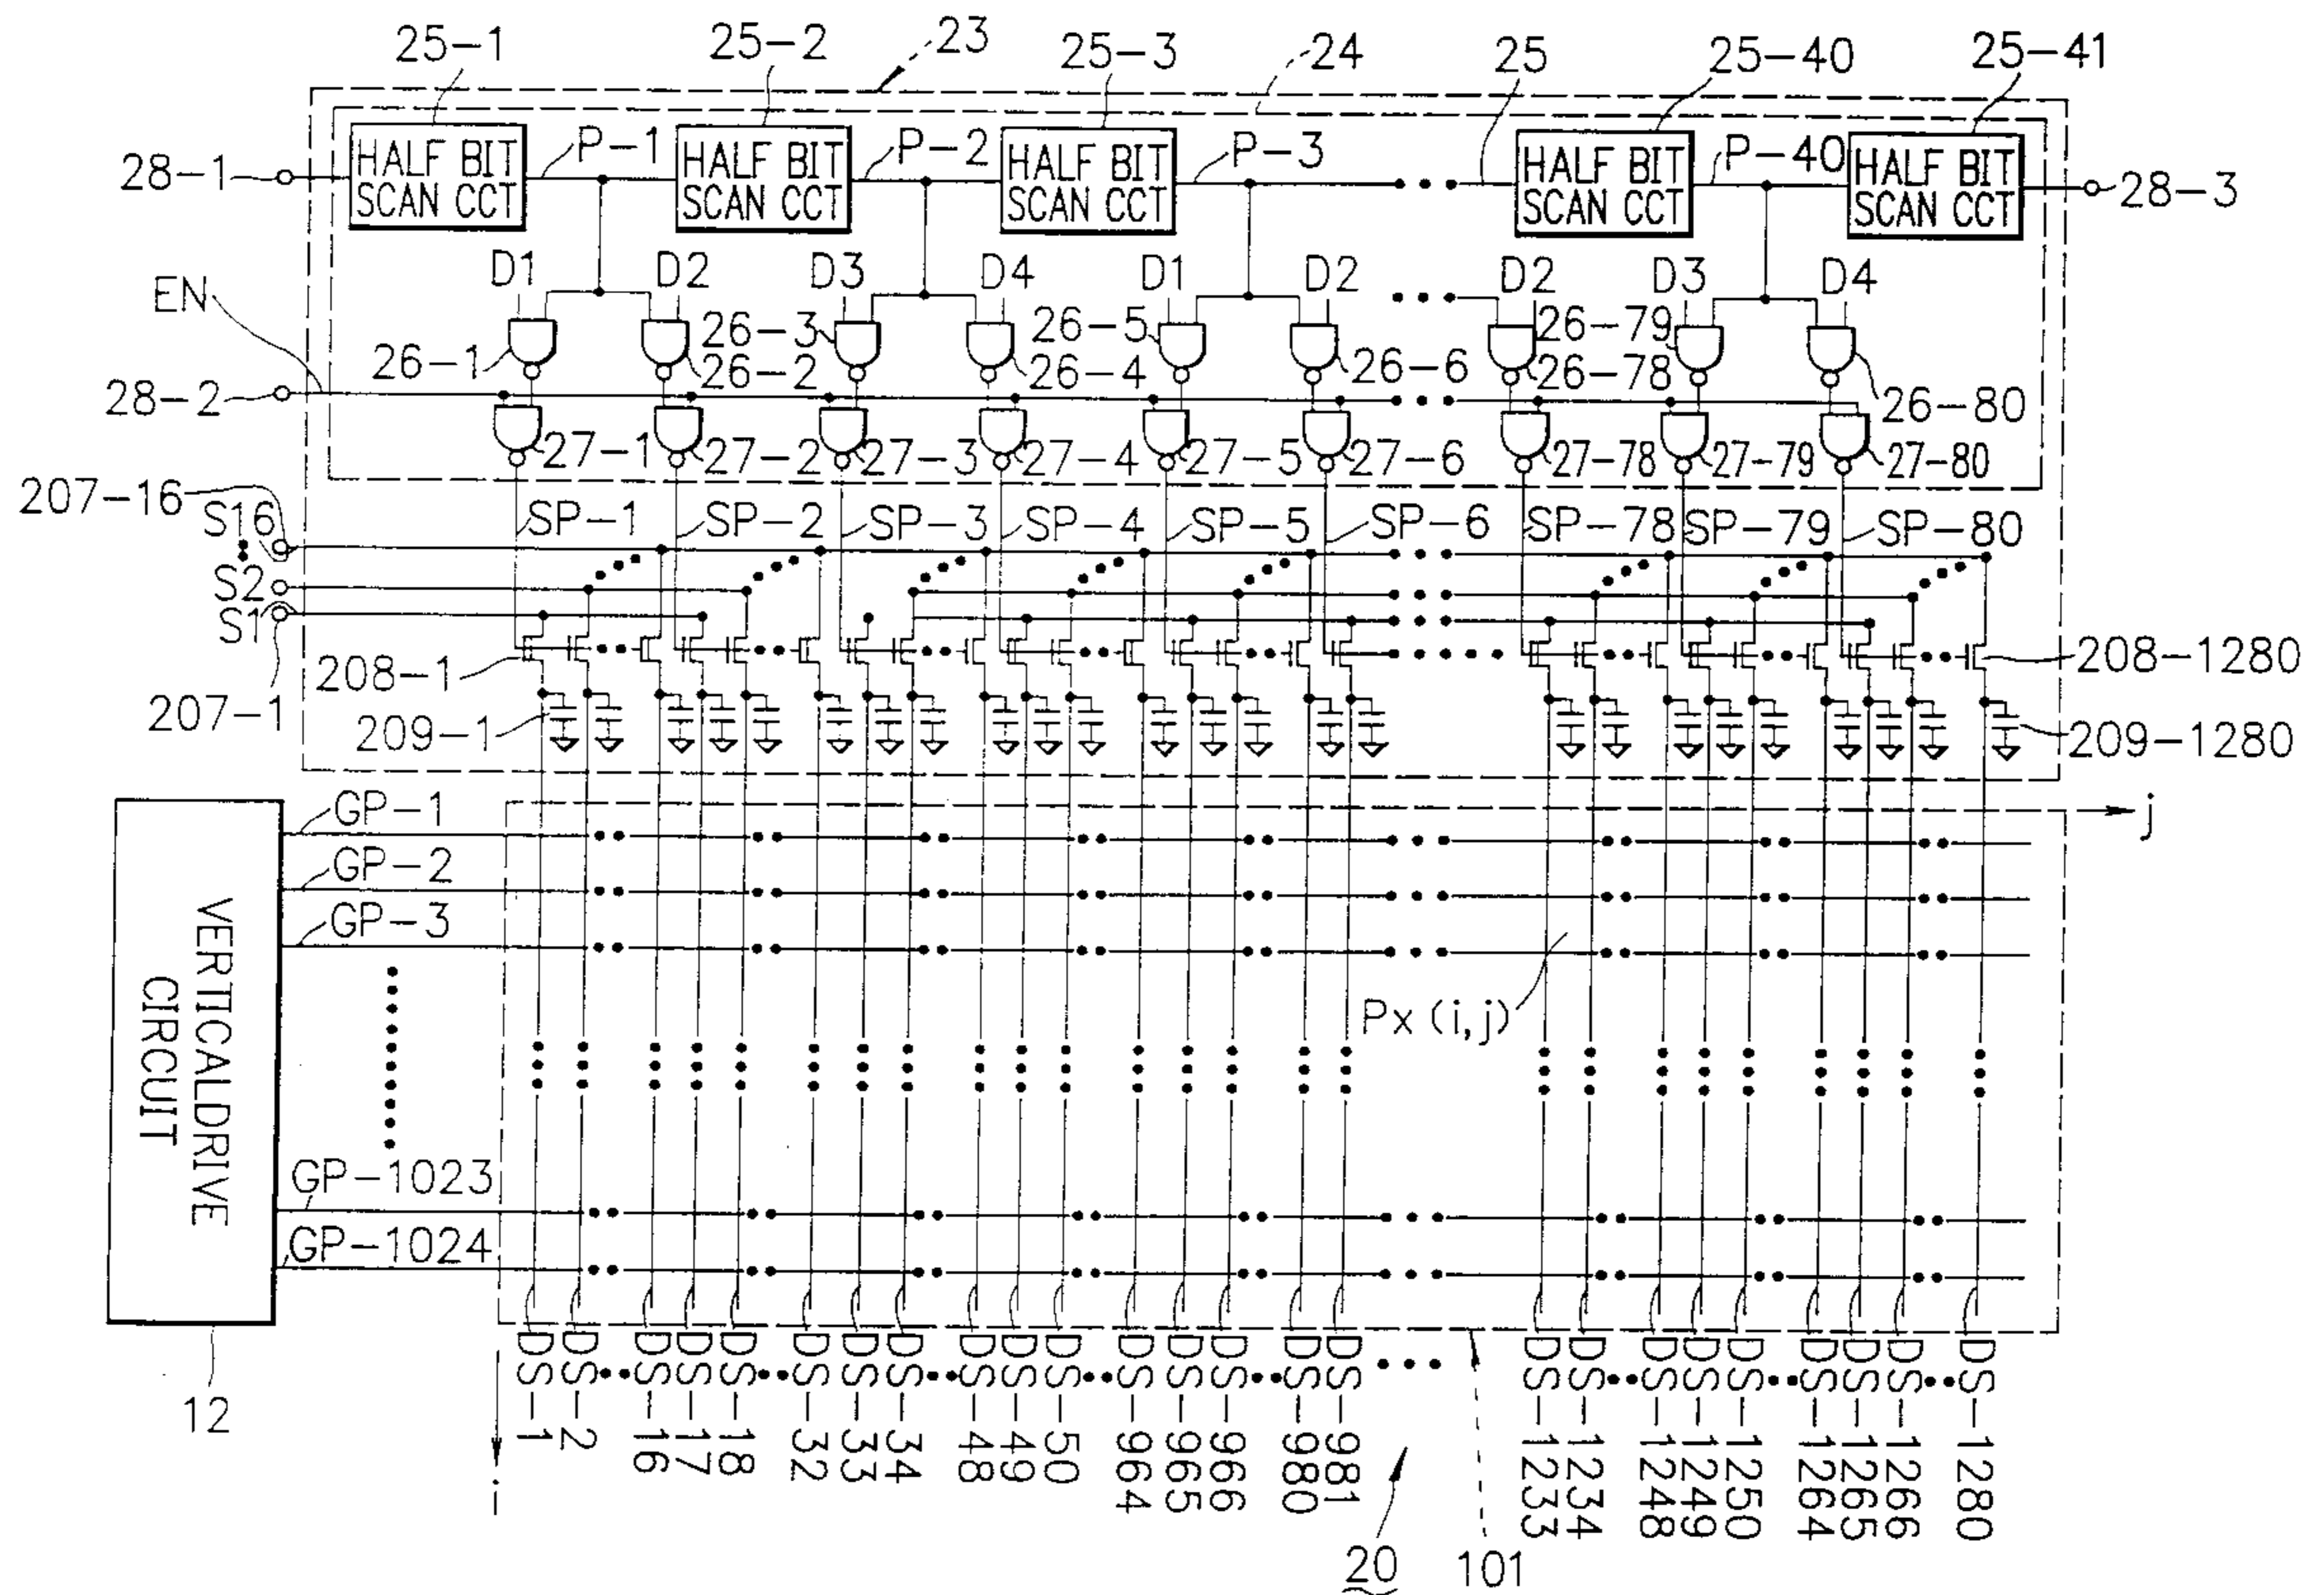 25-1 25-2 23 25-3 24 25 25-40 25-41
28-1 HALF BIT SCAN CCT P-1 HALF BIT SCAN CCT P-2 HALF BIT SCAN CCT P-3 HALF BIT SCAN CCT P-40 HALF BIT SCAN CCT 28-3
D1 D2 D3 D4 D1 D2 D2 D3 D4
EN
26-1 26-2 26-3 26-4 26-5 26-6 26-78 26-79 26-80
28-2
27-1 27-2 27-3 27-4 27-5 27-6 27-78 27-79 27-80
207-16
S16 SP-1 SP-2 SP-3 SP-4 SP-5 SP-6 SP-78 SP-79 SP-80
S2
S1
208-1 208-1280
207-1
209-1 209-1280
GP-1 j
GP-2
GP-3
VERTICALDRIVE
CIRCUIT
Px (i,j)
GP-1023
GP-1024
12
i
DS-1 DS-2 DS-16 DS-17 DS-18 DS-32 DS-33 DS-34 DS-48 DS-49 DS-50 DS-964 DS-965 DS-966 DS-980 DS-981 DS-1233 DS-1234 DS-1248 DS-1249 DS-1250 DS-1264 DS-1265 DS-1266 DS-1280
20 101